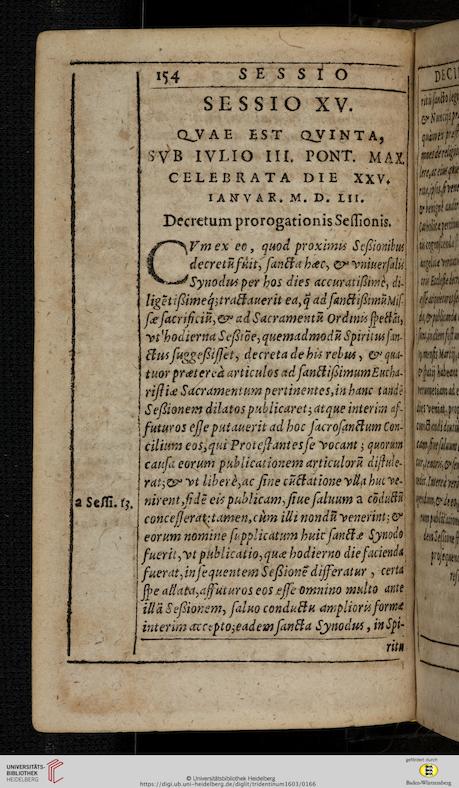 154 SESSIO
SESSIO XV.
QVAE EST QVINTA,
SVB IVLIO III. PONT. MAX.
CELEBRATA DIE XXV.
IANVAR. M. D. LII.
Decretum prorogationis Seſſionis.
CVm ex eo, quod proximis Seßionibus
decretũ fuit, ſancta hæc, & vniuerſalis
Synodus per hos dies accuratißimè, di-
ligẽtißimeq́; tractauerit ea, q̃ ad ſanctißimũ Miſ-
ſæ ſacrificiũ, & ad Sacramentũ Ordinis ſpectãt,
vt hodierna Seßiõe, quemadmodũ Spiritus ſan-
ctus ſuggeßiſſet, decreta de his rebus, & qua-
tuor præterea articulos ad ſanctißimum Eucha-
riſtiæ Sacramentum pertinentes, in hanc tandẽ
Seßionem dilatos publicaret; atque interim af-
futuros eſſe putauerit ad hoc ſacroſanctum Con-
cilium eos, qui Proteſtantes ſe vocant; quorum
cauſa eorum publicationem articulorũ diſtule-
rat; & vt liberè, ac ſine cũctatione vlla huc ve-
a Seſſ. 13. nirent, fidẽ eis publicam, ſiue ſaluum a cõductũ
conceſſerat: tamen, cùm illi nondũ venerint; &
eorum nomine ſupplicatum huic ſanctæ Synodo
fuerit, vt publicatio, quæ hodierno die facienda
fuerat, in ſequentem Seßionẽ differatur, certa
ſpe allata, affuturos eos eſſe omnino multo ante
illã Seßionem, ſaluo conductu amplioris formæ
interim accepto; eadem ſancta Synodus, in Spi-
ritu
UNIVERSITÄTS-
BIBLIOTHEK
HEIDELBERG
© Universitätsbibliothek Heidelberg
https://digi.ub.uni-heidelberg.de/diglit/tridentinum1603/0166
gefördert durch
Baden-Württemberg